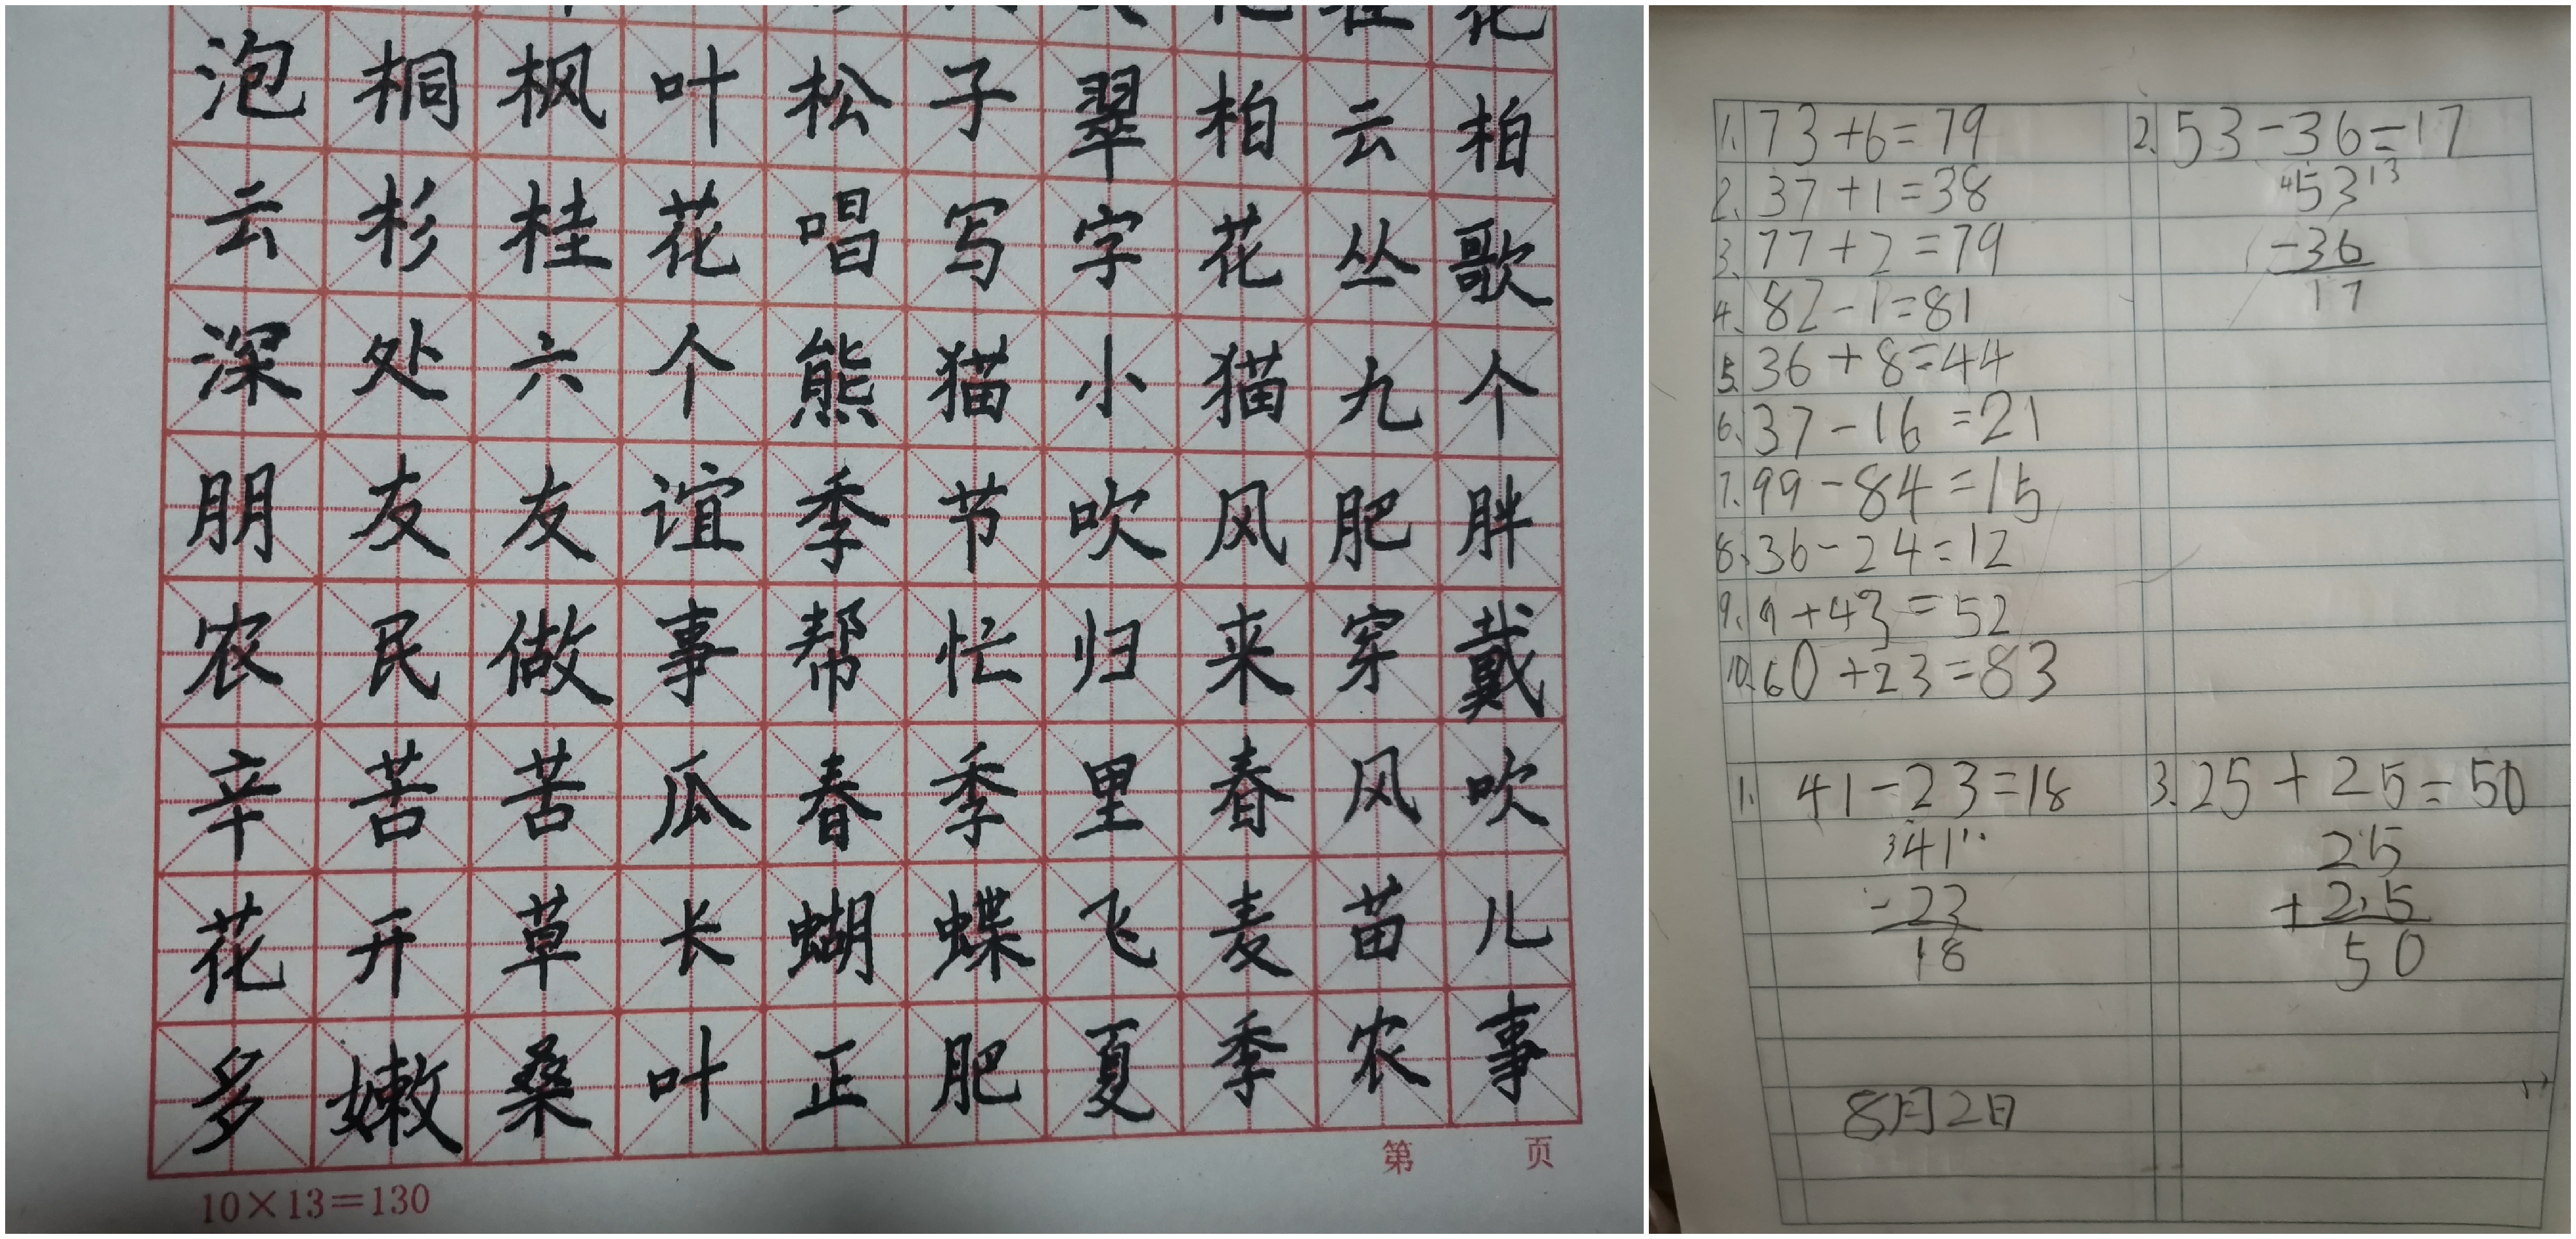 泡桐枫叶松子翠柏云柏
云杉桂花唱写字花丛歌
深处六个熊猫小猫九个
朋友友谊季节吹风肥胖
农民做事帮忙归来穿戴
辛苦苦瓜春季里春风吹
花开草长蝴蝶飞麦苗儿
多嫩桑叶正肥夏季农事
第 页
10×13=130
1. 73+6=79
2. 37+1=38
3. 77+2=79
4. 82-1=81
5. 36+8=44
6. 37-16=21
7. 99-84=15
8. 36-24=12
9. 9+43=52
10. 60+23=83
2. 53-36=17
4 53 13
-36
17
1. 41-23=18
3 41 11
-23
18
3. 25+25=50
25
+25
50
8月2日